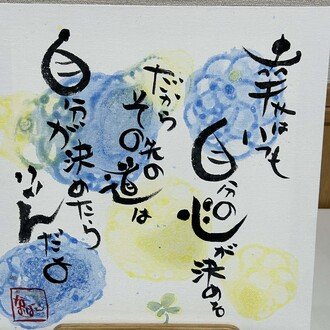 幸せはいつも
自分の心が決める
だから
その先の道は
自分が決めたら
いいんだよ